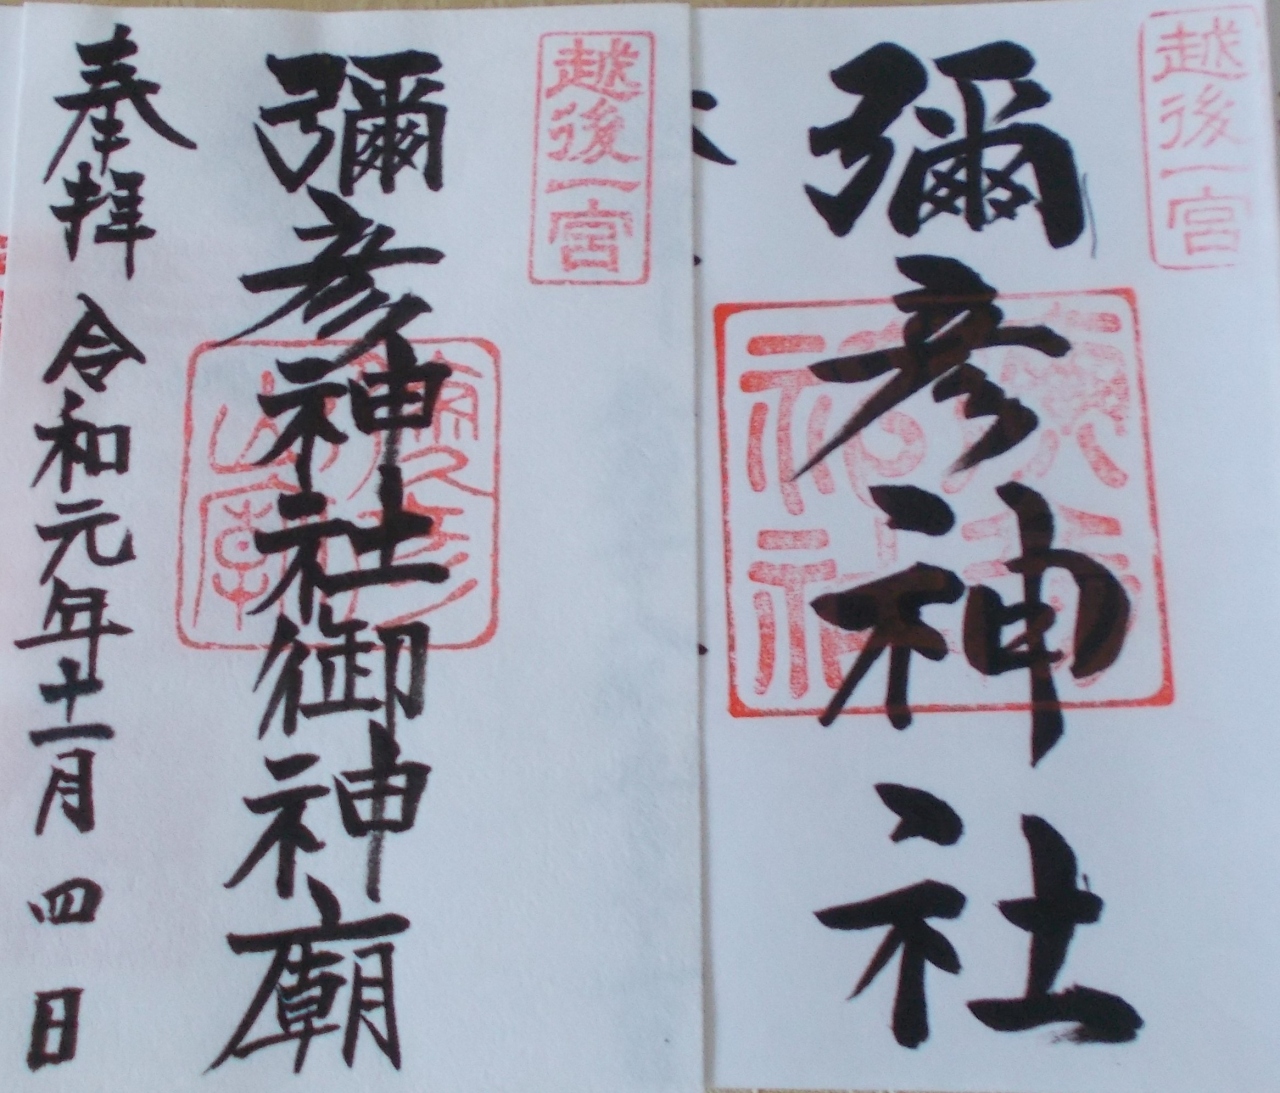 越後一宮
彌彦神社
越後一宮
彌彦神社御神廟
奉拝 令和元年十一月四日